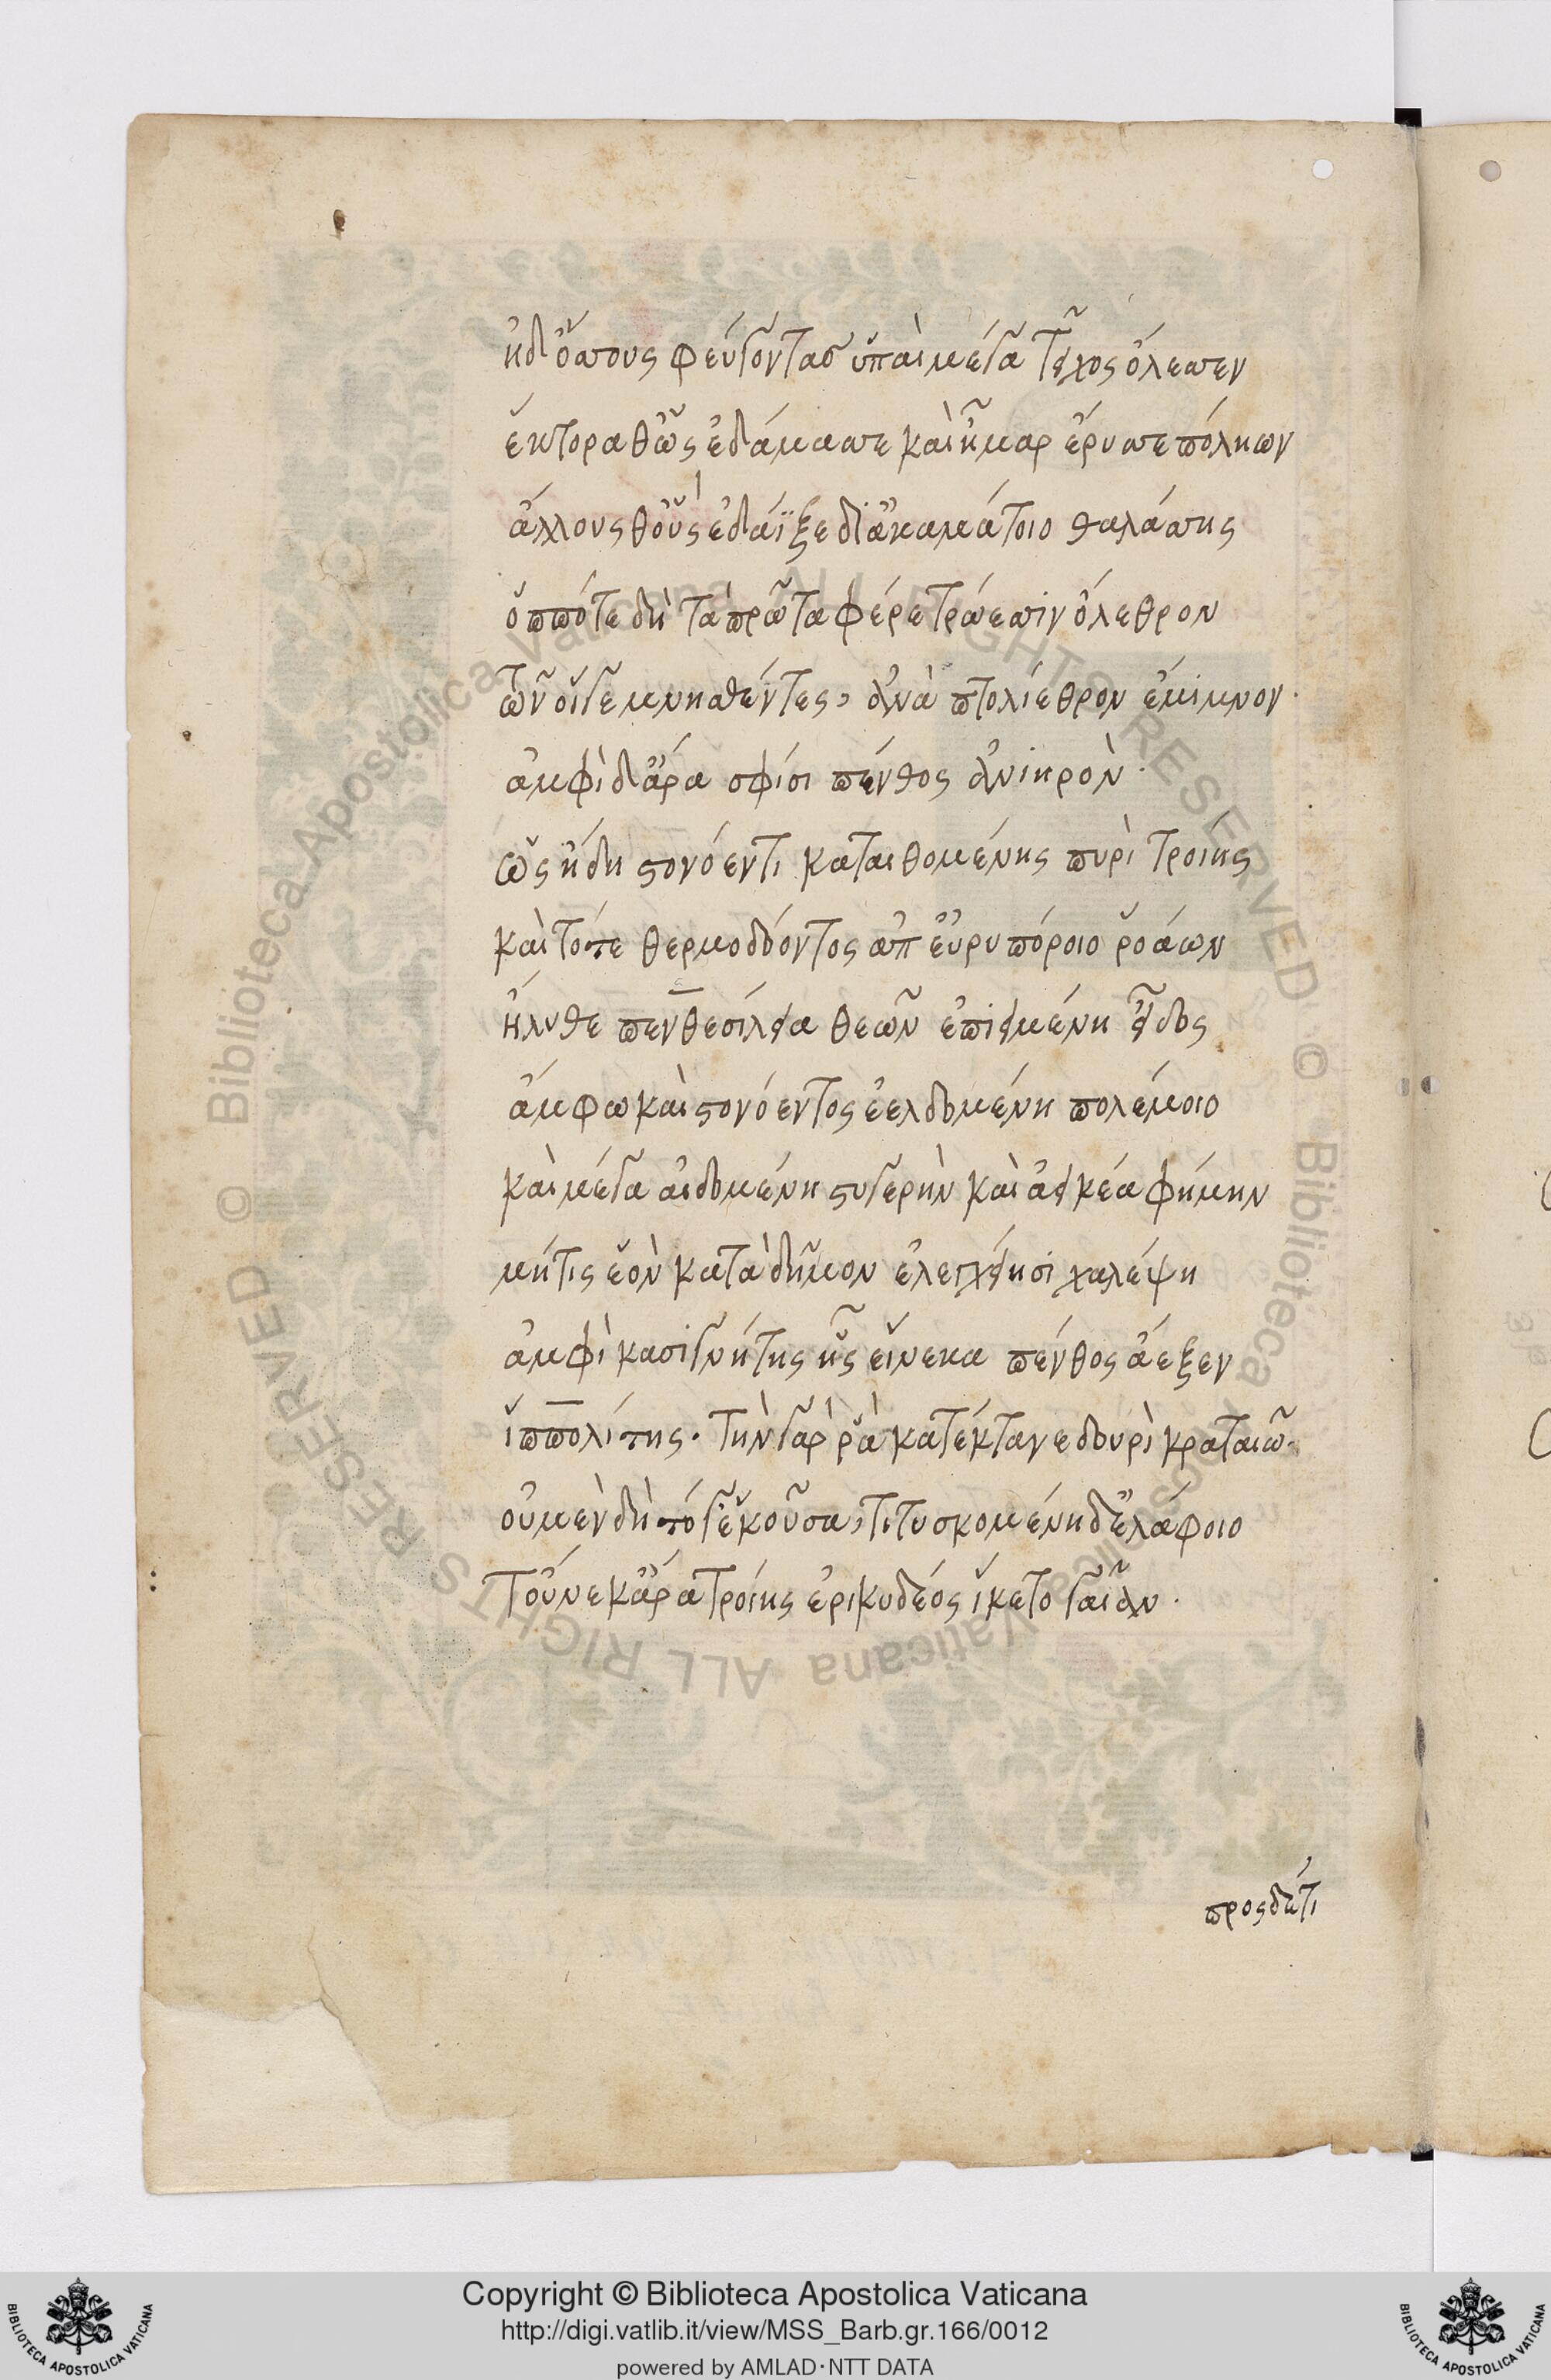 ἠδ' ὅσσους φεύγοντας ὑπαὶ μέγα τεῖχος ὄλεσσεν
ἕκτορα θ' ὡς ἐδάμασσε καὶ ἦμαρ ἐρυσσε πόληων
ἄλλους θ' οὓς ἐδάϊξε δι' ἀκαμάτοιο θαλάσσης
ὁππότε δὴ τὰ πρῶτα φέρε τρώεσσιν ὄλεθρον
τῶν οἵγε μνησθέντες, ἀνὰ πτολίεθρον ἔμιμνον.
ἀμφὶ δ' ἄρά σφίσι πένθος ἀνιηρὸν.
ὡς ἤδη στονόεντι καταιθομένης πυρὶ τροίης
καὶ τότε θερμοδόοντος ἀπ' εὐρυπόροιο ῥοάων
ἤλυθε πενθεσίλεια θεῶν ἐπιειμένη εἶδος
ἄμφω καὶ στονόεντος ἐελδομένη πολέμοιο
καὶ μέγα αἰδομένη στυγερὴν καὶ ἀεικέα φήμην
μήτις ἑὸν κατὰ δῆμον ἐλεγχείησι χαλέψη
ἀμφὶ κασιγνήτης ἧς εἵνεκα πένθος ἄεξεν
ἱππολίτης. τὴν γὰρ ῥὰ κατέκτανε δουρὶ κραταιῶ.
οὐ μὲν δὴ τό γ' ἑκοῦσα, τιτυσκομένη δ' ἐλάφοιο
τοὔνεκ' ἄρα τροίης ἐρικυδέος ἵκετο γαῖαν.
προς δ' ἔτι
Copyright © Biblioteca Apostolica Vaticana
http://digi.vatlib.it/view/MSS_Barb.gr.166/0012
powered by AMLAD·NTT DATA